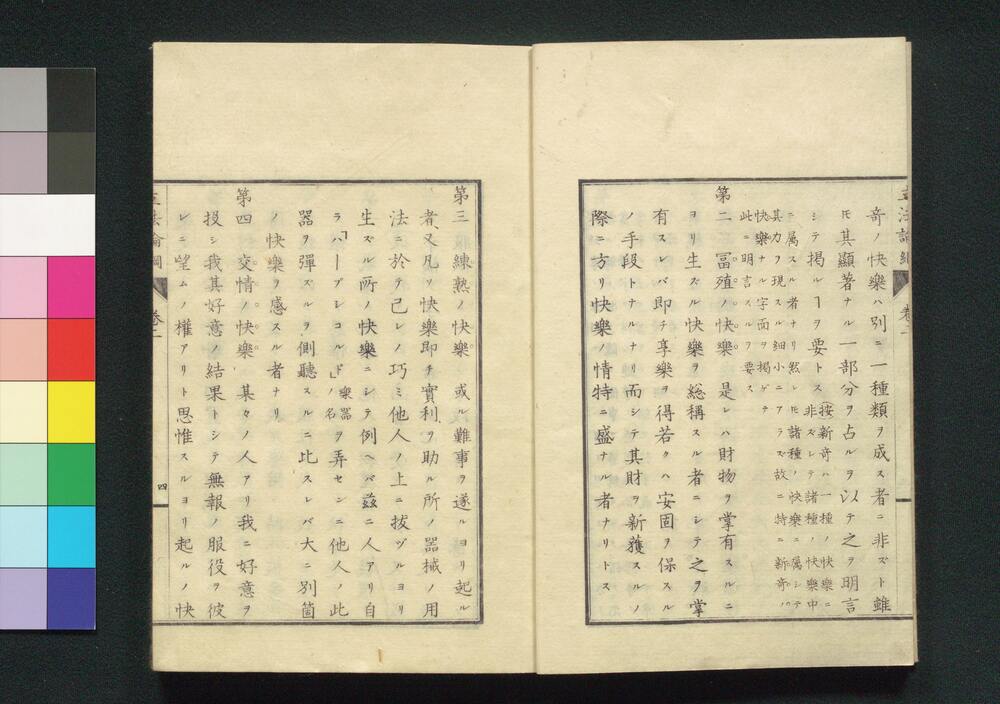 立法論綱 卷二
奇ノ快樂ハ別ニ一種類ヲ成ス者ニ非ズト雖
モ其顯著ナル一部分ヲ占ルヲ以テ之ヲ明言
シテ掲ルヿヲ要トス
(按新奇ハ一種ノ快樂ニ
非ズシテ諸種ノ快樂中
ニ属スル者ナリ然レモ諸種ノ快樂ニ属シテ
其力ヲ現スル細小ニアラズ故ニ特ニ新奇ノ
快樂ナル字面ヲ掲ゲテ
此ニ明言スルヲ要ス
第二 冨殖ノ快樂 是レハ財物ヲ掌有スルニ
ヨリ生ズル快樂ヲ総稱スル者ニシテ之ヲ掌
有スレバ即チ享樂ヲ得若クハ安固ヲ保スル
ノ手段トナルナリ而シテ其財ヲ新獲スルノ
際ニ方リ快樂ノ情特ニ盛ナル者ナリトス
第三 練熟ノ快樂 或ル難事ヲ遂ルヨリ起ル
者又凡ソ快樂即チ實利ヲ助ル所ノ器械ノ用
法ニ於テ己レノ巧ミ他人ノ上ニ拔ヅルヨリ
生ズル所ノ快樂ニシテ例ヘバ茲ニ人アリ自
ラ「ハーブシコルド」樂器ノ名ヲ弄センニ他人ノ此
器ヲ彈ズルヲ側聽スルニ比スレバ大ニ別箇
ノ快樂ヲ感スル者ナリ
第四 交情ノ快樂 某々ノ人アリ我ニ好意ヲ
投シ我其好意ノ結果トシテ無報ノ服役ヲ彼
レニ望ムノ權アリト思惟スルヨリ起ルノ快
立法論綱 卷二 四